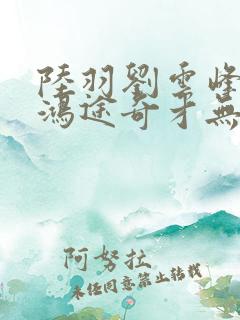 陸羽劉雲峰
鴻途奇才無
阿努拉
未經同意禁止轉載